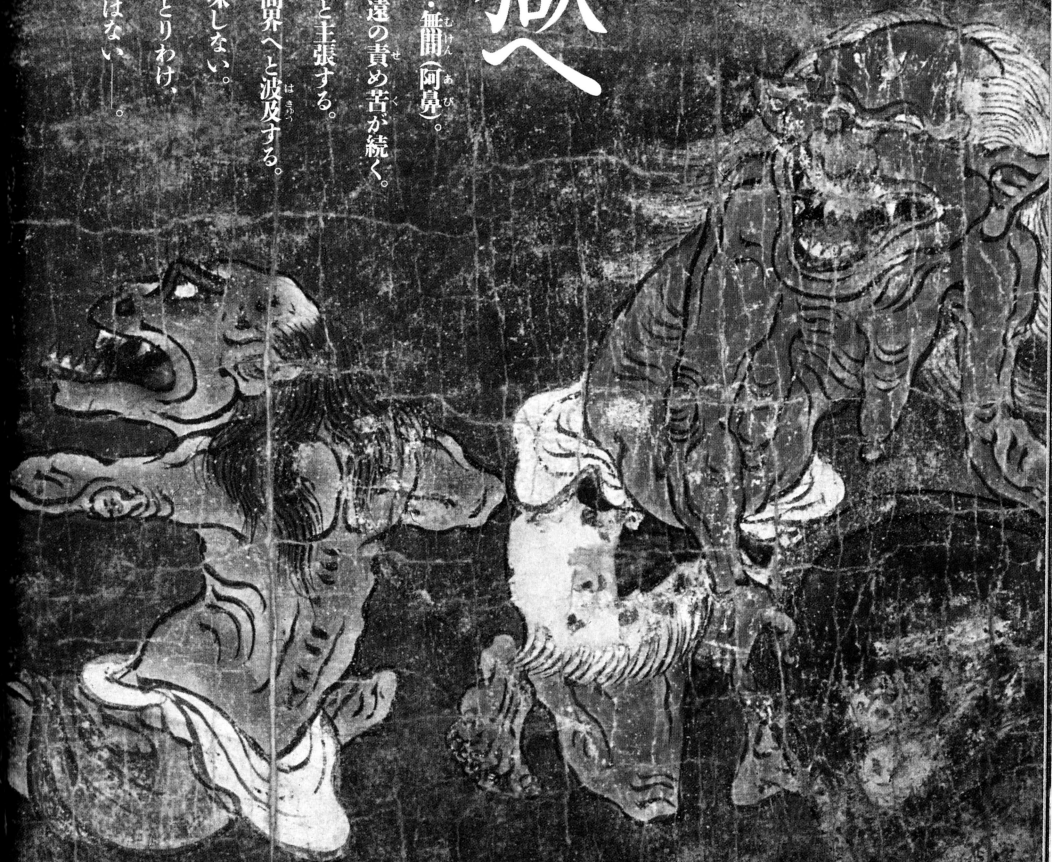 獄へ
・無間(阿鼻)。
遠の責め苦が続く。
と主張する。
間界へと波及する。
来しない。
とりわけ、
はない――。